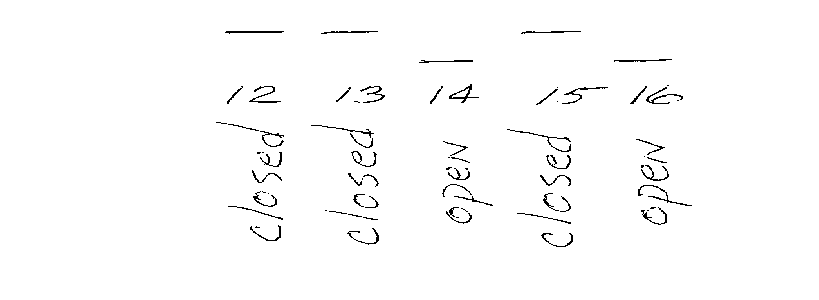 12 13 14 15 16
closed closed open closed open